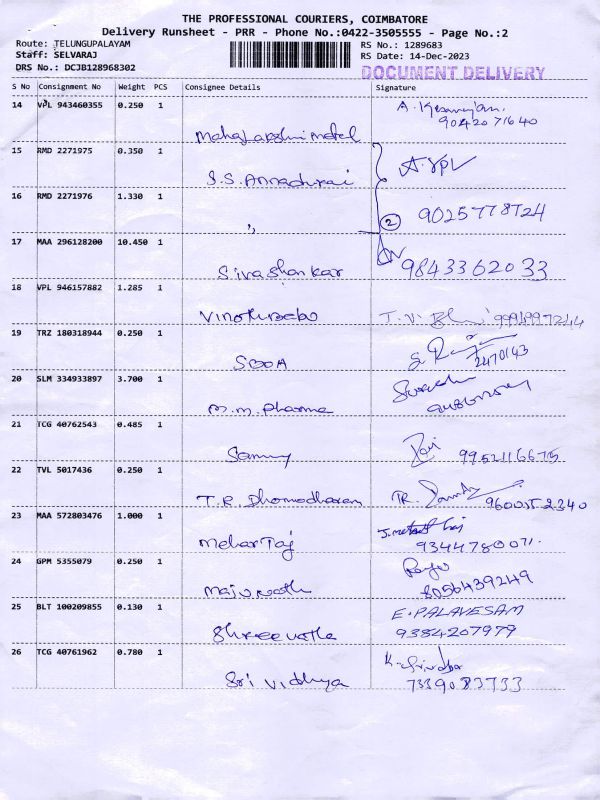 THE PROFESSIONAL COURIERS, COIMBATORE
Delivery Runsheet - PRR - Phone No.:0422-3505555 - Page No.:2
Route: TELUNGUPALAYAM
Staff: SELVARAJ
DRS No.: DCJB128968302
RS No.: 1289683
RS Date: 14-Dec-2023
DOCUMENT DELIVERY
S No Consignment No Weight PCS Consignee Details Signature
14 VPL 943460355 0.250 1
9042071640
Mahalakshmi metel
15 RMD 2271975 0.350 1
S.S. Annadurai
16 RMD 2271976 1.330 1
2 9025778724
"
17 MAA 296128200 10.450 1
Sivashankar 9843362033
18 VPL 946157882 1.285 1
Vinothbabu T.V. 9994997244
19 TRZ 180318944 0.250 1
SODA 2470143
20 SLM 334933897 3.700 1
M.M. Pharma
21 TCG 40762543 0.485 1
Sammy 9952116675
22 TVL 5017436 0.250 1
T.R. Dhomodharan TR. 9600152340
23 MAA 572803476 1.000 1
Mehar Taj 9344780071.
24 GPM 5355079 0.250 1
8056439249
25 BLT 100209855 0.130 1
E. PALAVESAM
9384207979
26 TCG 40761962 0.780 1
Sri Vidhya 7339083733